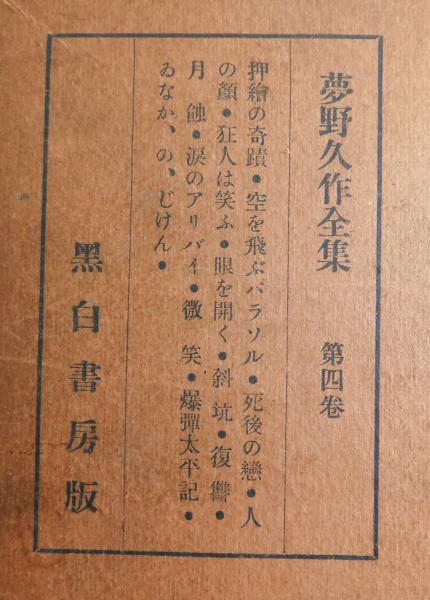 夢野久作全集　第四卷
押繪の奇蹟●空を飛ぶパラソル●死後の戀●人
の顏●狂人は笑ふ●眼を開く●斜坑●復讐●
月蝕●淚のアリバイ●微笑●爆彈太平記●
ゐなか、の、じけん●
黑白書房版